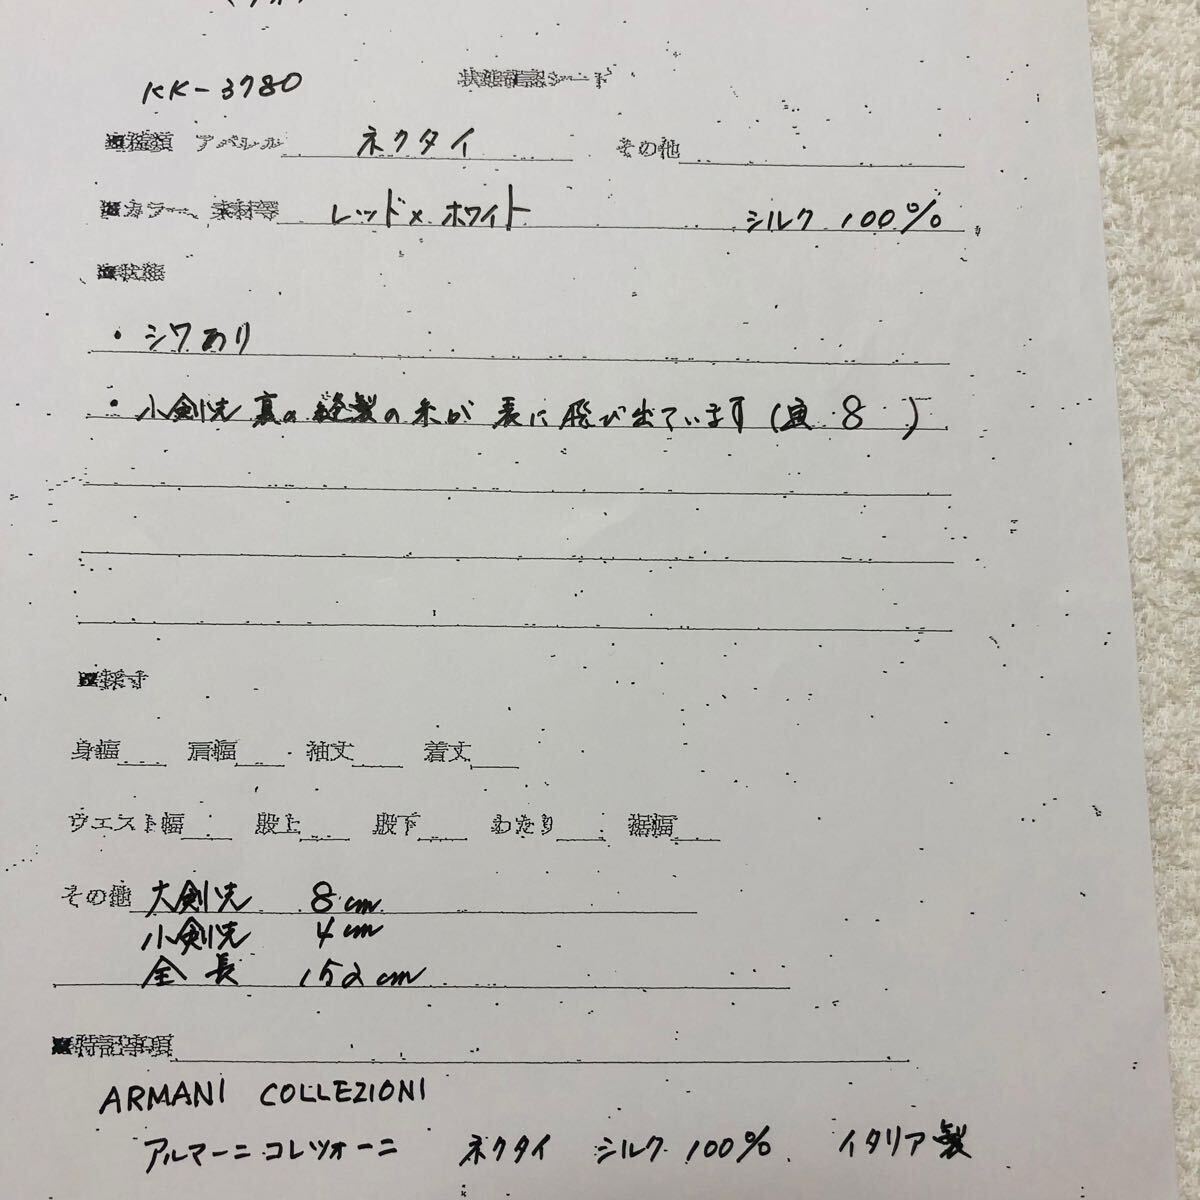 KK-3780 状態確認シート
■種類 アパレル ネクタイ その他
■カラー、素材等 レッド×ホワイト シルク 100%
■状態
・シワあり
・小剣先 裏の縫製の糸が 表に 飛び出ています( 8 )
■採寸
身幅 肩幅 袖丈 着丈
ウエスト幅 股上 股下 わたり 裾幅
その他 大剣先 8cm
小剣先 4cm
全長 152cm
■特記事項
ARMANI COLLEZIONI
アルマーニ コレツォーニ ネクタイ シルク 100% イタリア製